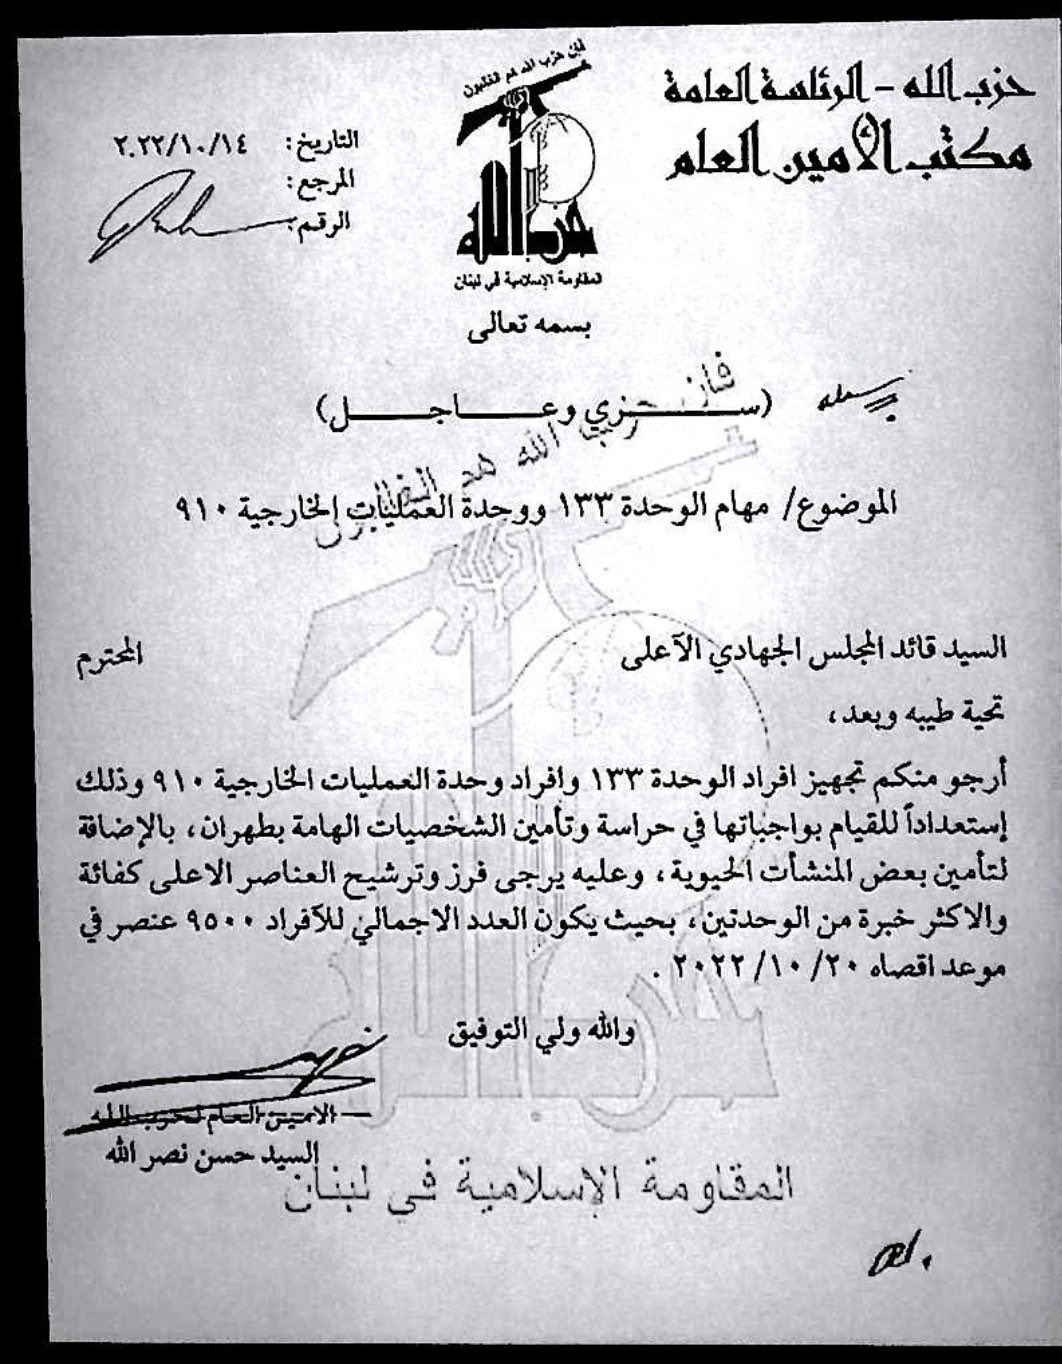 حزب الله - الرئاسة العامة
مكتب الأمين العام
فإن حزب الله هم الغالبون
حزب الله
المقاومة الإسلامية في لبنان
التاريخ: ٢٠٢٢/١٠/١٤
المرجع:
الرقم:
بسمه تعالى
(سري وعاجل)
الموضوع/ مهام الوحدة ١٣٣ ووحدة العمليات الخارجية ٩١٠
السيد قائد المجلس الجهادي الآعلى المحترم
تحية طيبه وبعد،
أرجو منكم تجهيز افراد الوحدة ١٣٣ وافراد وحدة العمليات الخارجية ٩١٠ وذلك
إستعداداً للقيام بواجباتها في حراسة وتأمين الشخصيات الهامة بطهران، بالإضافة
لتأمين بعض المنشأت الحيوية، وعليه يرجى فرز وترشيح العناصر الاعلى كفائة
والاكثر خبرة من الوحدتين، بحيث يكون العدد الاجمالي للآفراد ٩٥٠٠ عنصر في
موعد اقصاه ٢٠٢٢/١٠/٢٠ .
والله ولي التوفيق
الامين العام لحزب الله
السيد حسن نصر الله
فإن حزب الله هم الغالبون
حزب الله
المقاومة الإسلامية في لبنان